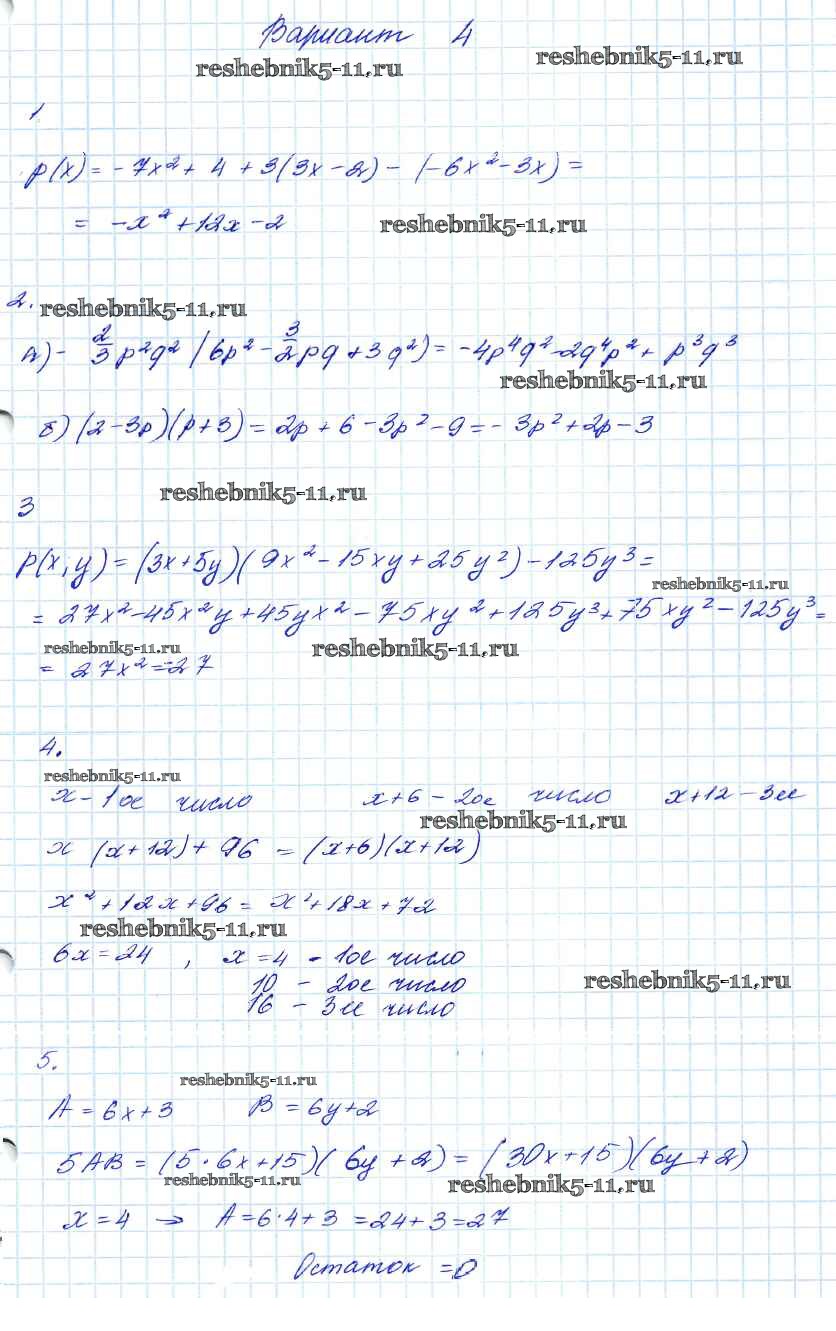 Вариант 4
reshebnik5-11.ru reshebnik5-11.ru
1
p(x) = -7x² + 4 + 3(3x-2) - (-6x²-3x) =
= -x² + 12x - 2 reshebnik5-11.ru
2. reshebnik5-11.ru
а) - 2/3 p²q² (6p² - 3/2 pq + 3q²) = -4p⁴q² - 2q⁴p² + p³q³
reshebnik5-11.ru
б) (2-3p)(p+3) = 2p + 6 - 3p² - 9 = -3p² + 2p - 3
reshebnik5-11.ru
3
p(x,y) = (3x+5y)(9x² - 15xy + 25y²) - 125y³ =
reshebnik5-11.ru
= 27x² - 45x²y + 45yx² - 75xy² + 125y³ + 75xy² - 125y³ =
reshebnik5-11.ru reshebnik5-11.ru
= 27x² = -27
4.
reshebnik5-11.ru
x - 1ое число x+6 - 2ое число x+12 - 3ье
reshebnik5-11.ru
x (x+12) + 96 = (x+6)(x+12)
x² + 12x + 96 = x² + 18x + 72
reshebnik5-11.ru
6x = 24 , x = 4 - 1ое число
10 - 2ое число reshebnik5-11.ru
16 - 3ье число
5.
reshebnik5-11.ru
A = 6x+3 B = 6y+2
5AB = (5·6x+15)(6y+2) = (30x+15)(6y+2)
reshebnik5-11.ru reshebnik5-11.ru
x = 4 → A = 6·4+3 = 24+3 = 27
Остаток = 0